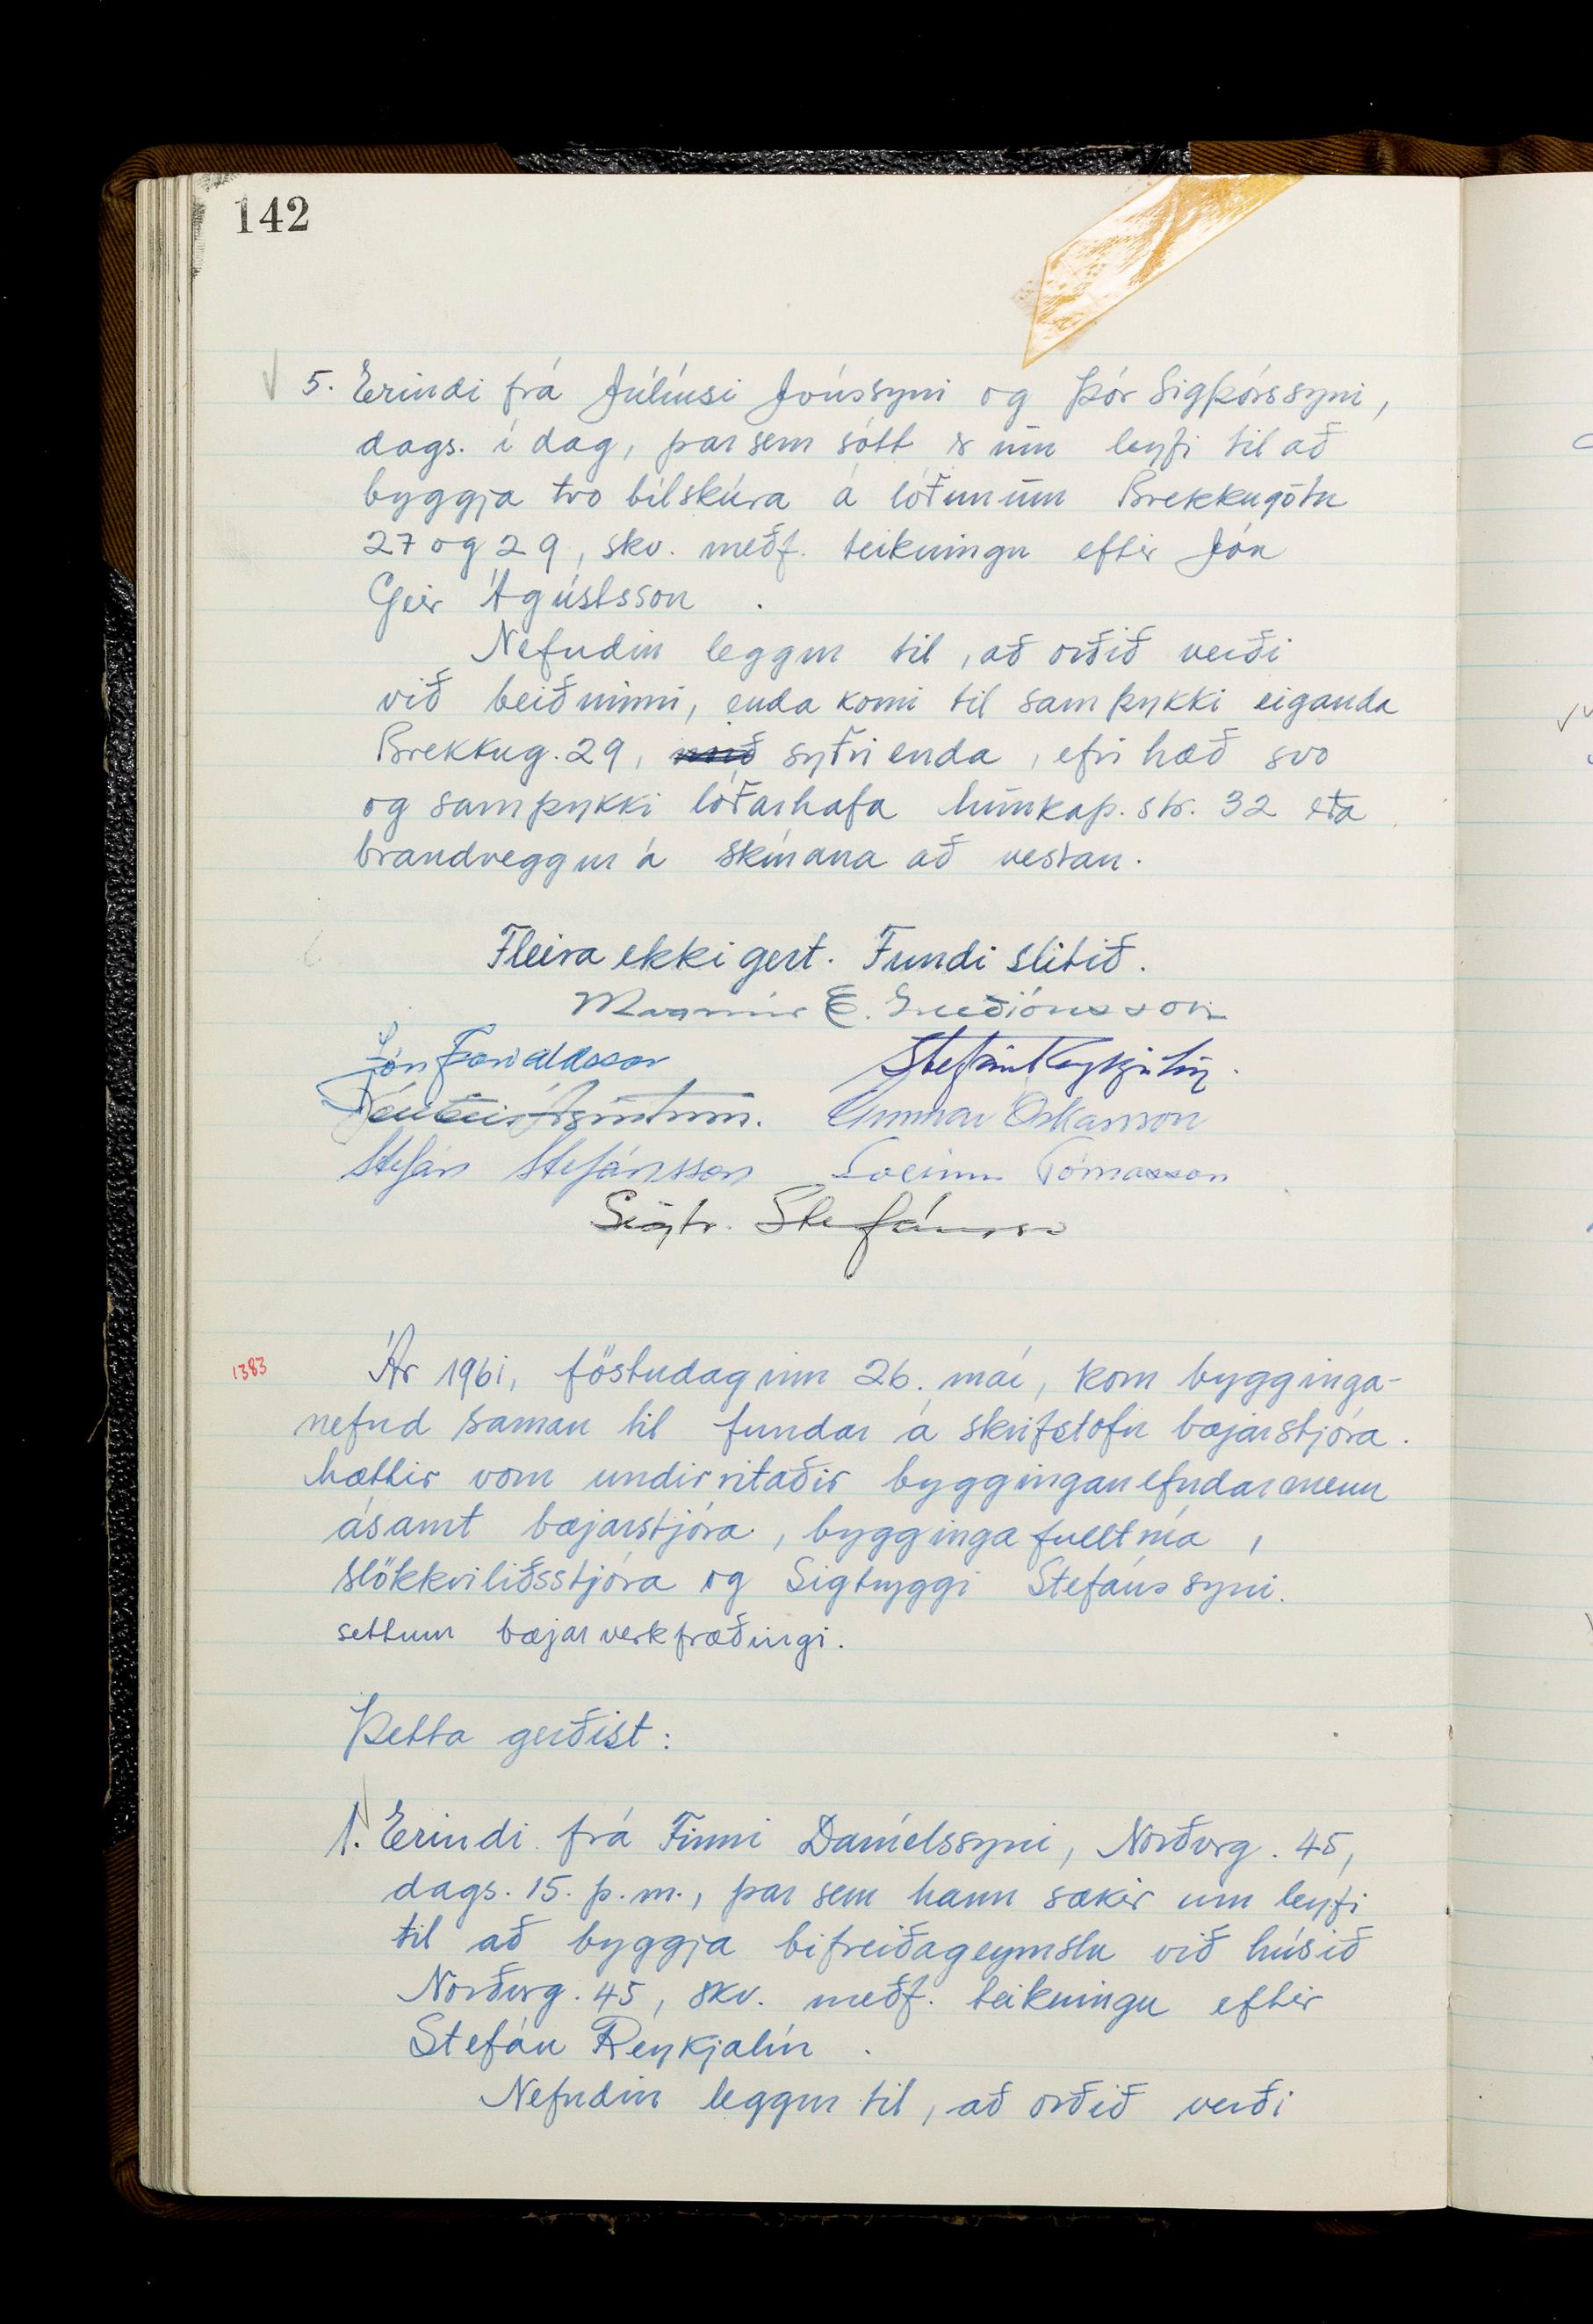 142
5. Erindi frá Júlíusi Jónssyni og Þór Sigþórssyni,
dags. í dag, þar sem sótt er um leyfi til að
byggja tvo bílskúra á lóðunum Brekkugötu
27 og 29, skv. meðf. teikningu eftir Jón
Geir Ágústsson .
Nefndin leggur til, að orðið verði
við beiðninni, enda komi til samþykki eiganda
Brekkug. 29, syðri enda, efri hæð svo
og samþykki lóðarhafa Munkaþ. str. 32 eða
brandveggur á skúrana að vestan.
Fleira ekki gert. Fundi slitið.
Magnús E. Guðjónsson
Jón Þorvaldsson Stefán Reykjalín.
Gunnar Óskarsson
Stefán Stefánsson Sveinn Tómasson
Sigtr. Stefánsson
1383
Ár 1961, föstudaginn 26. maí, kom bygginga-
nefnd saman til fundar á skrifstofu bæjarstjóra.
Mættir vom undirritaðir bygginganefndarmenn
ásamt bæjarstjóra, byggingafulltrúa,
slökkviliðsstjóra og Sigtryggi Stefánssyni.
settum bæjarverkfræðingi.
Þetta gerðist:
1. Erindi frá Finni Daníelssyni, Norðurg. 45,
dags. 15. þ.m., þar sem hann sækir um leyfi
til að byggja bifreiðageymslu við húsið
Norðurg. 45, skv. meðf. teikningu eftir
Stefán Reykjalín .
Nefndin leggur til, að orðið verði